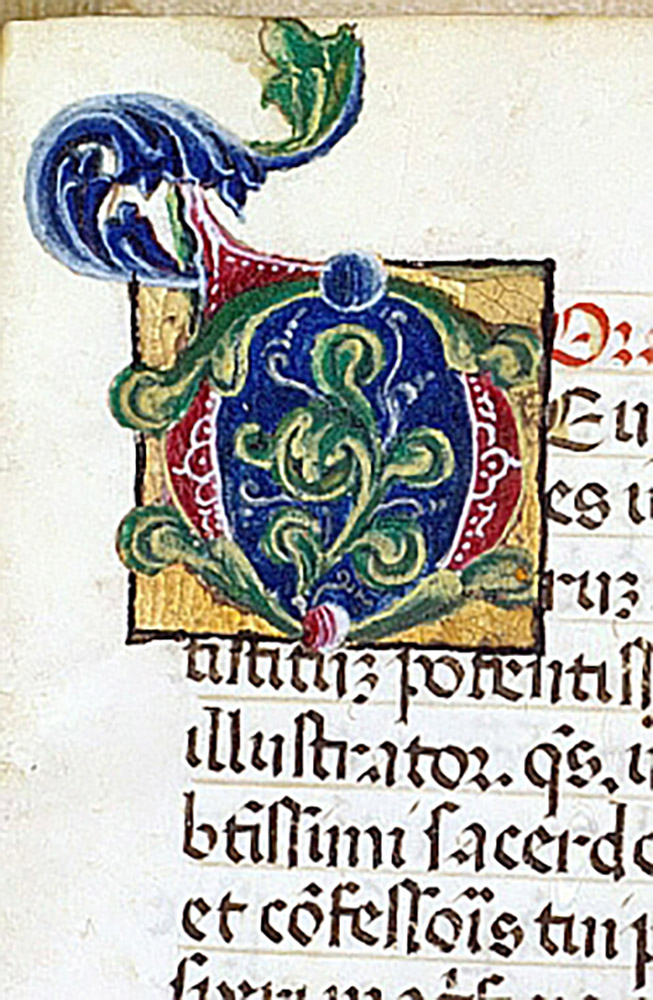 D Or
Eu
es i
ruz
tistituz potentiss
illustrator. q̃s. i
btissimi sacerdo
et cõfessois tui p